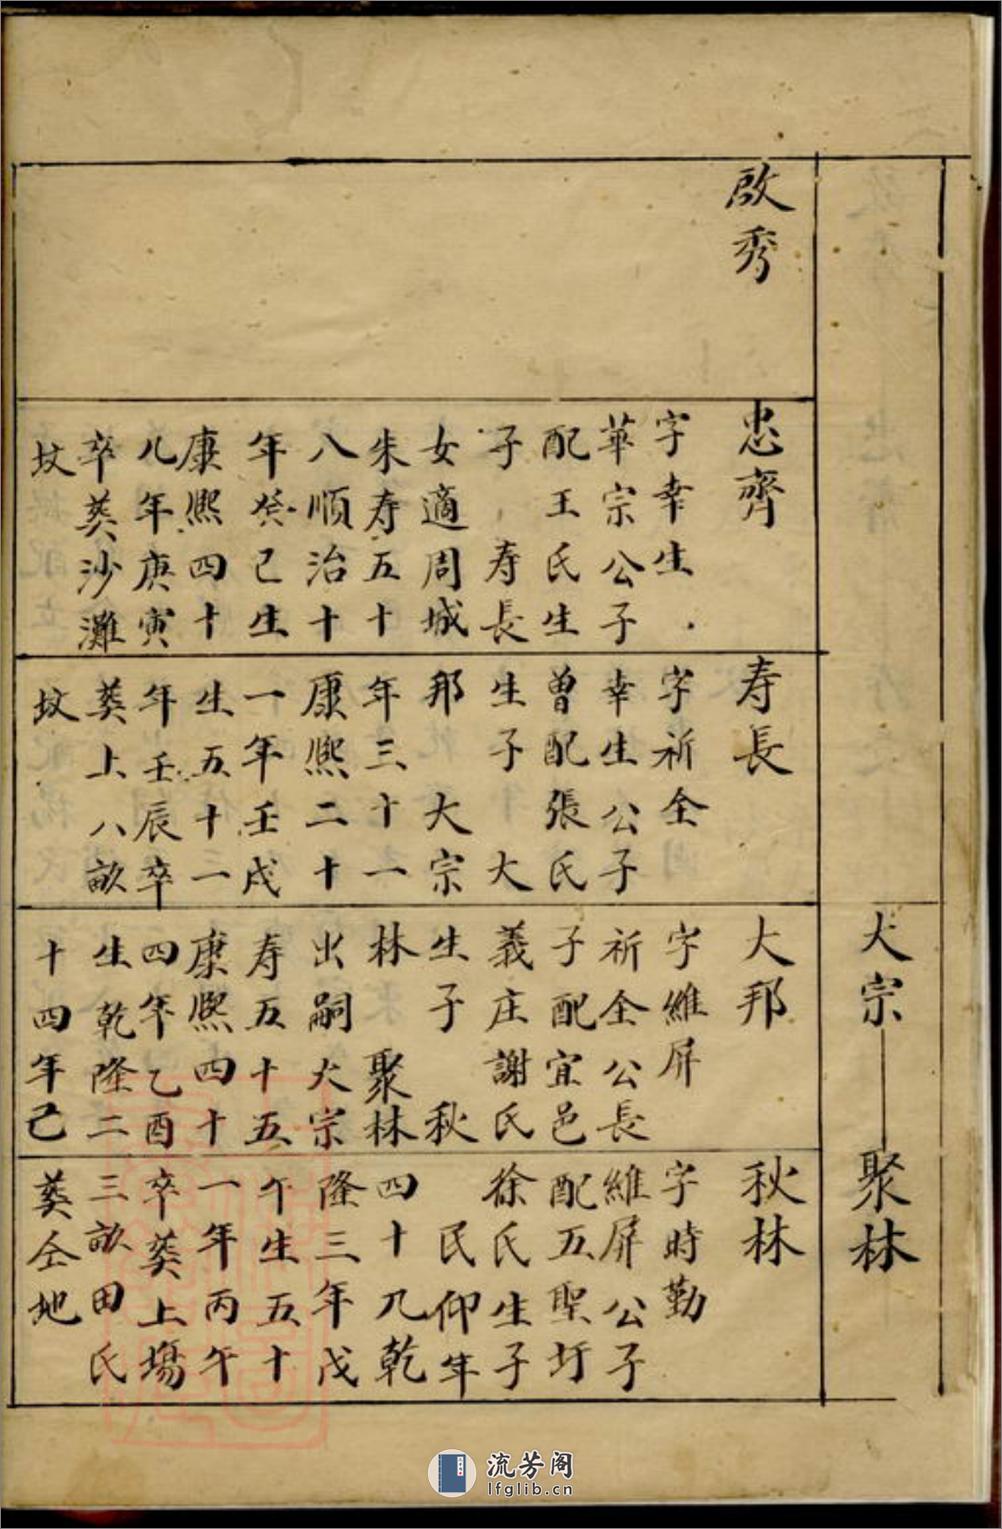 大宗 聚林
啟秀
忠齊
字幸生
華宗公子
配王氏生
子 寿長
女適周城
朱寿五十
八順治十
年癸己生
康熙四十
九年庚寅
卒葵沙灘
坟
寿長
字祈全
幸生公子
曾配張氏
生子 大
邦 大宗
年三十一
康熙二十
一年壬戌
生五十一
年壬辰卒
葵上八畝
坟
大邦
字維屏
祈全公長
子配宜邑
義庄謝氏
生子 秋
林 聚林
出嗣大宗
寿五十五
康熙四十
四年乙酉
生乾隆二
十四年己
秋林
字時勤
維屏公子
配五聖圩
徐氏生子
民仰年
四十九乾
隆三年戊
午生五十
一年丙午
卒葵上塲
三畝田氏
葵仝地
流芳阁
lfglib.cn